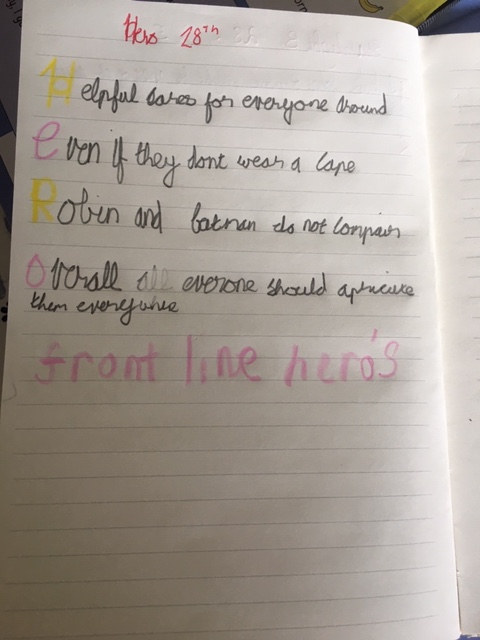 Hero 28th
Helpful cares for everyone around
Even if they dont wear a cape
Robin and batman do not compair
Overall all everone should apriciate
them everywhere
front line hero's